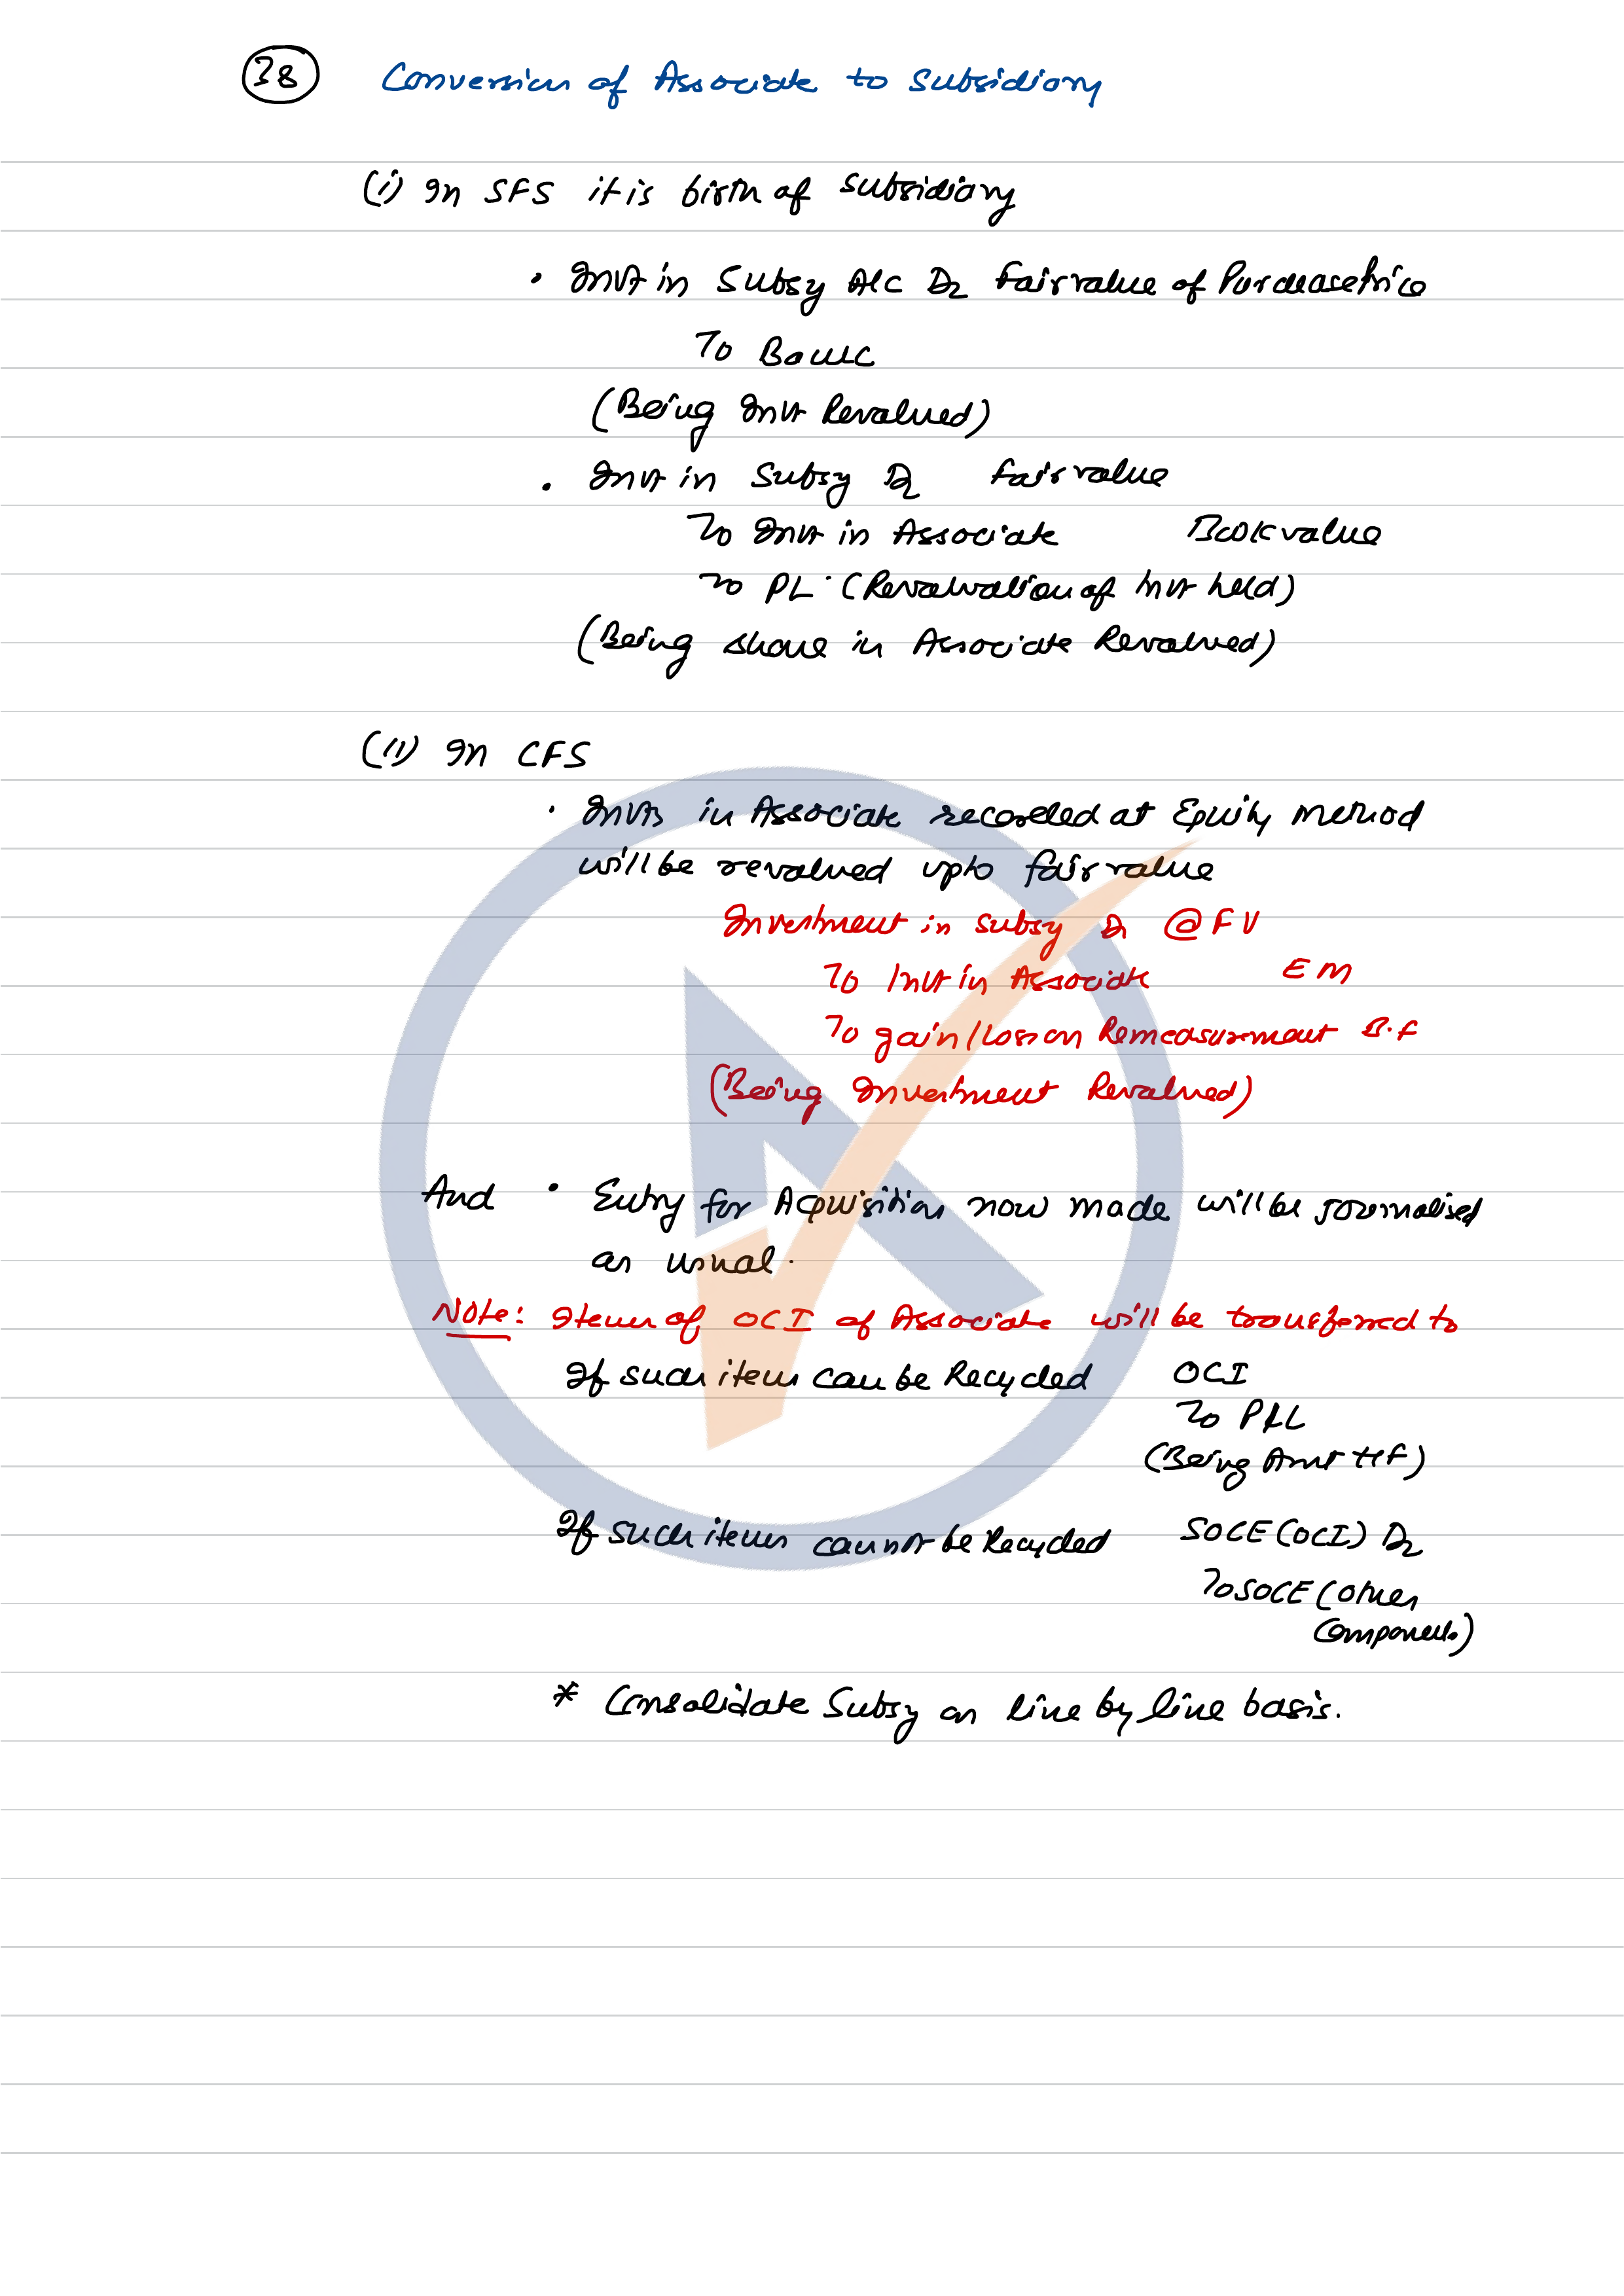 38 Conversion of Associate to Subsidiary
(i) In SFS it is birth of subsidiary
· Invt in Subsy A/c Dr Fair value of Purchase Price
To Bank
(Being Invt Revalued)
· Invt in Subsy Dr Fair value
To Invt in Associate Book value
To PL (Revaluation of Invt held)
(Being share in Associate Revalued)
(ii) In CFS
· Invts in Associate recorded at Equity Method
will be revalued upto fair value
Investment in subsy Dr @ FV
To Invt in Associate EM
To gain/Loss on Remeasurement B.f
(Being Investment Revalued)
And · Entry for Acquisition now made will be journalised
as usual.
Note: Items of OCI of Associate will be transferred to
If such items can be Recycled OCI
To P&L
(Being Amt trf)
If such items cannot be Recycled SOCE (OCI) Dr
To SOCE (other
Components)
* Consolidate Subsy on line by line basis.